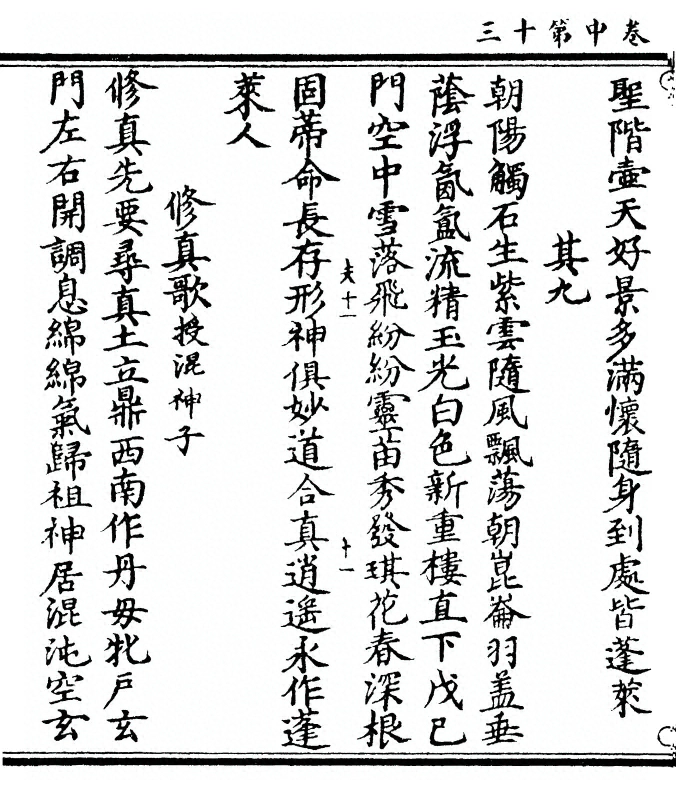 卷中第十三
聖階壺天好景多滿懷隨身到處皆蓬萊
其九
朝陽觸石生紫雲隨風飄蕩朝崑崙羽盖垂
蔭浮氤氳流精玉光白色新重樓直下戊己
門空中雪落飛紛紛靈苗秀發琪花春深根
夫十一
十一
固蔕命長存形神俱妙道合真逍遥永作蓬
萊人
修真歌授混神子
修真先要尋真土立鼎西南作丹毋牝戶玄
門左右開調息綿綿氣歸祖神居混沌空玄